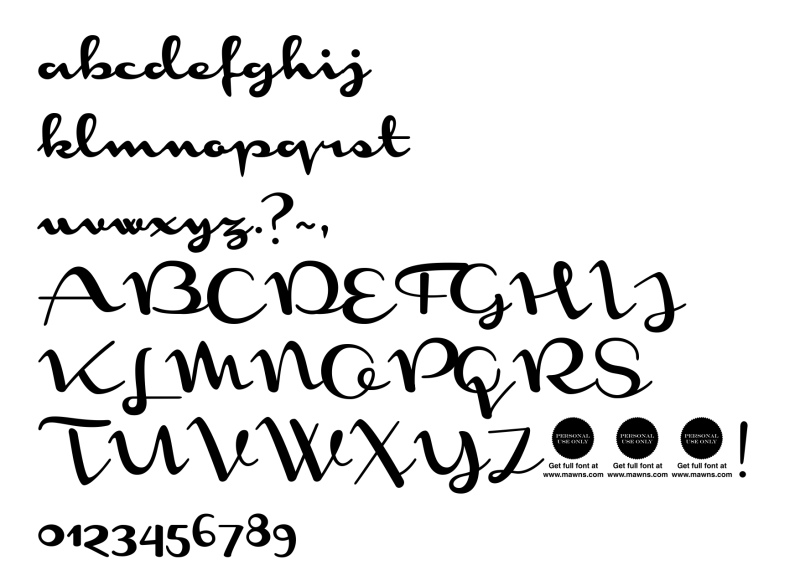 abcdefghij
klmnopqrst
uvwxyz.?~,
ABCDEFGHIJ
KLMNOPQRS
TUVWXYZ PERSONAL USE ONLY PERSONAL USE ONLY PERSONAL USE ONLY !
Get full font at Get full font at Get full font at
www.mawns.com www.mawns.com www.mawns.com
0123456789